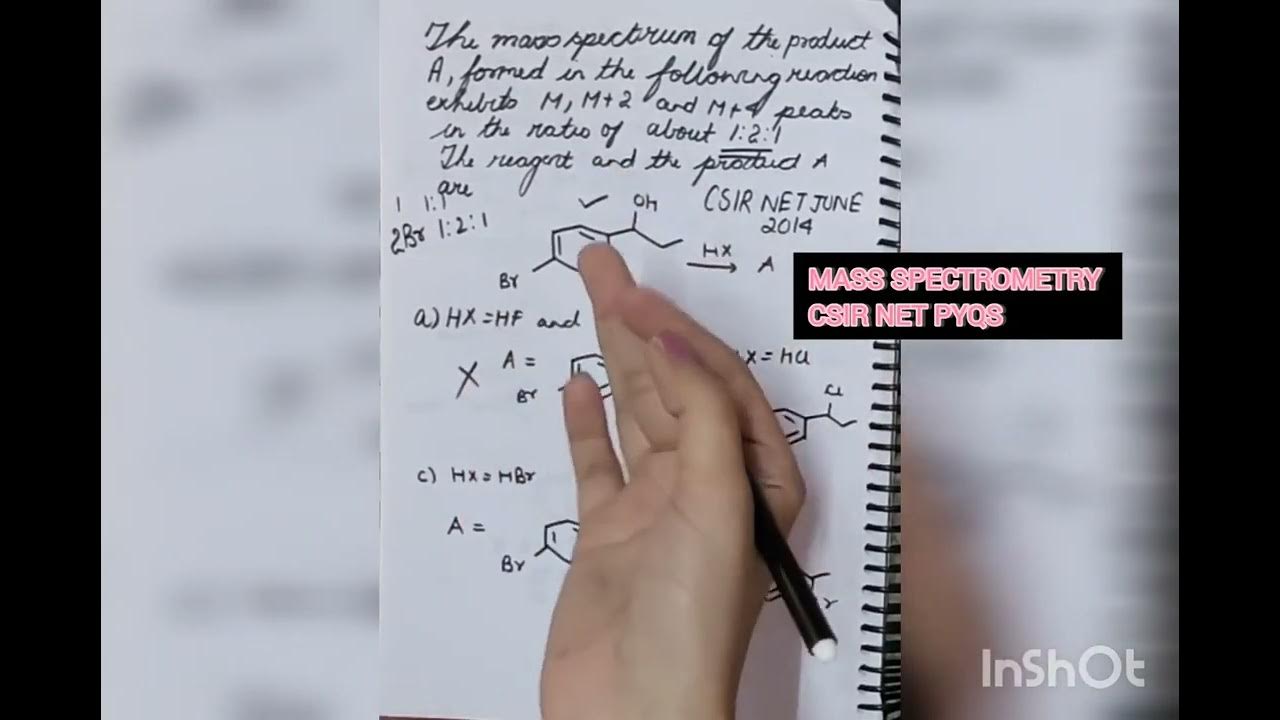 The mass spectrum of the product
A, formed in the following reaction
exhibits M, M+2 and M+4 peaks
in the ratio of about 1:2:1
The reagent and the product A
are
1 1:1
2Br 1:2:1
OH
CSIR NET JUNE
2014
HX
A
Br
MASS SPECTROMETRY
CSIR NET PYQS
a) HX = HF and
X = HCl
A =
Br
Cl
c) HX = HBr
A =
Br
InShOt